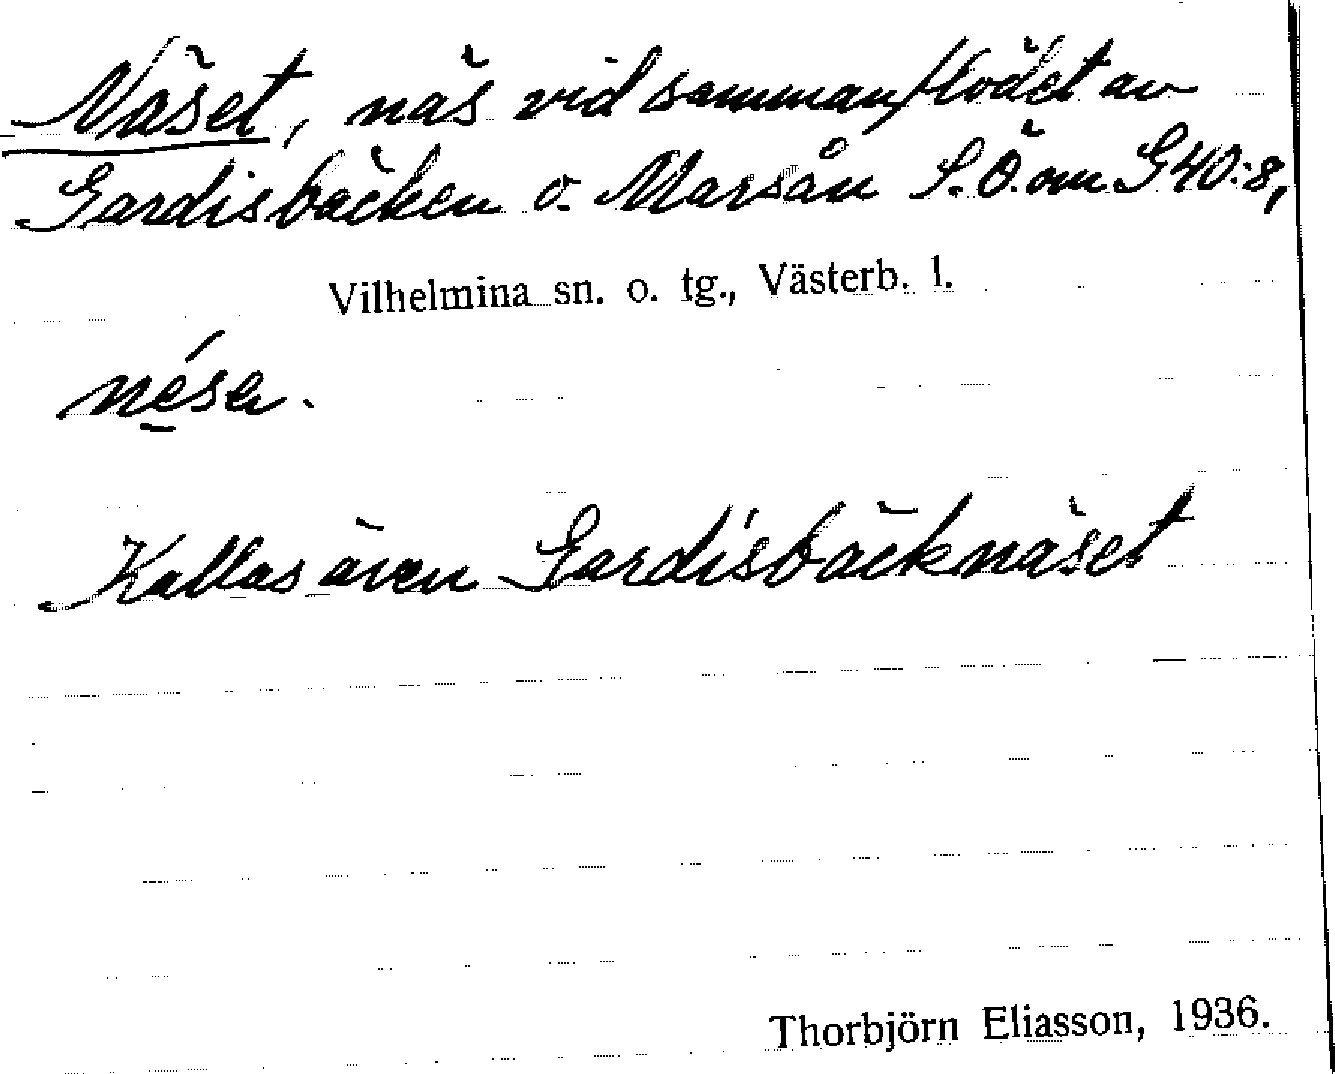 Näset, näs vid sammanflödet av
Gardisbäcken o. Marsån S.Ö. om G40:8,
Vilhelmina sn. o. tg., Västerb. l.
Kallas även Gardisbäcknäset
Thorbjörn Eliasson, 1936.